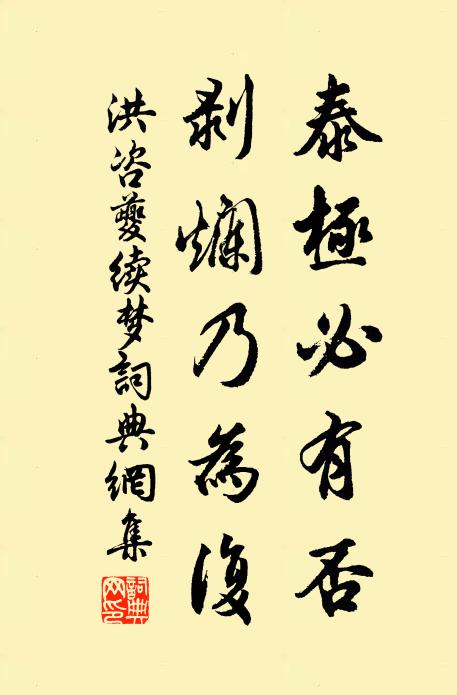 泰極必有否
剥爛乃為復
洪咨夔续梦詞典網集
詞典网印